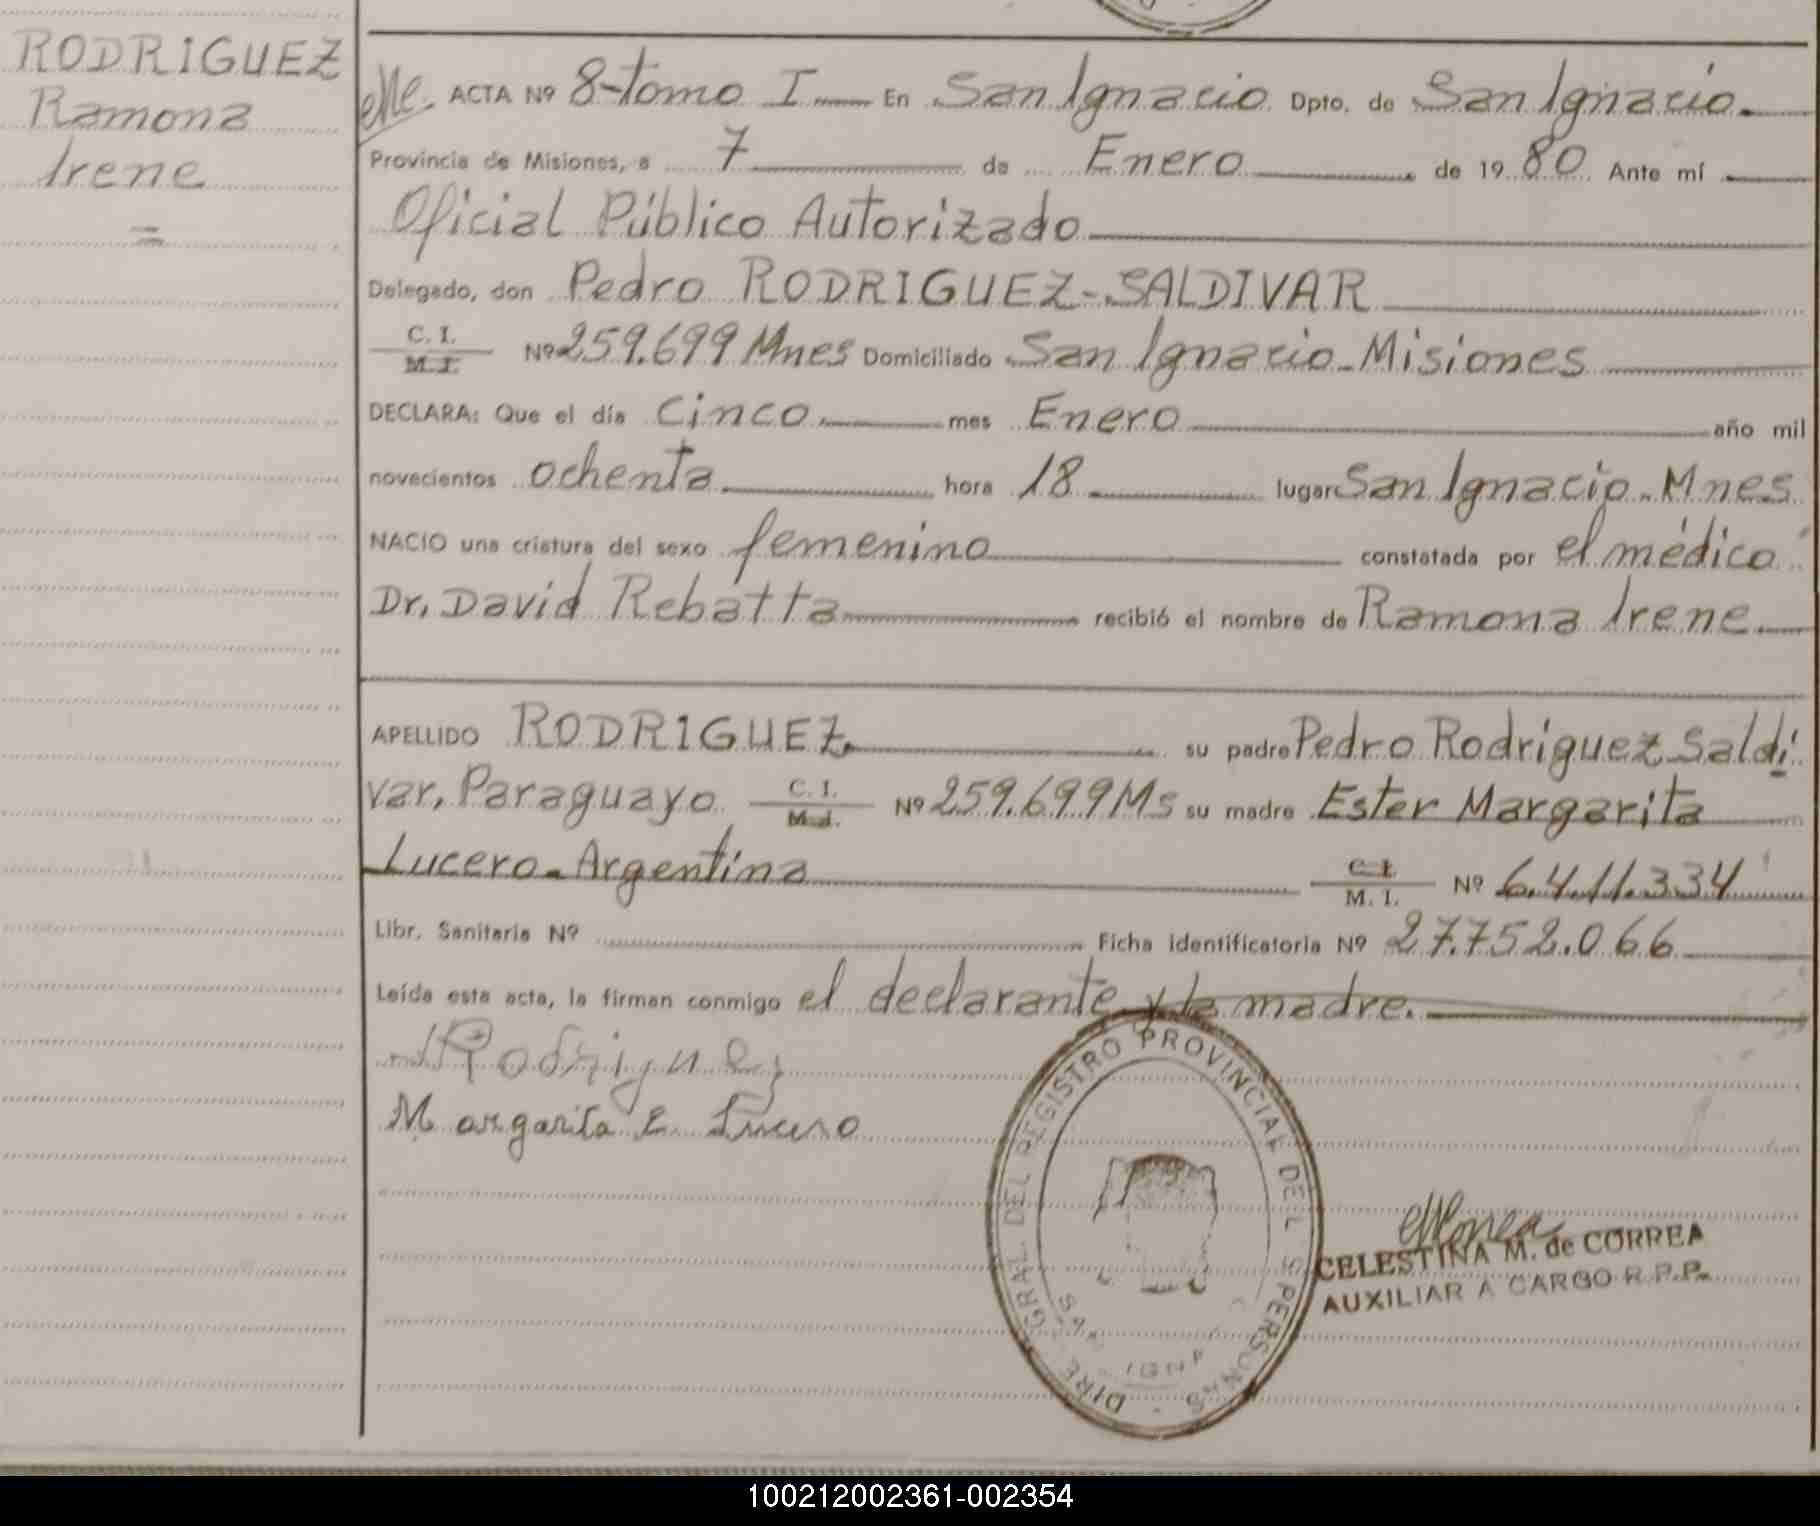 RODRIGUEZ
Ramona
Irene
=
ACTA Nº 8-tomo I En San Ignacio Dpto. de San Ignacio
Provincia de Misiones, a 7 de Enero de 1980 Ante mí
Oficial Público Autorizado
Delegado, don Pedro RODRIGUEZ-SALDIVAR
C. I.
M. I. Nº 259.699 Mnes Domiciliado San Ignacio-Misiones
DECLARA: Que el día Cinco mes Enero año mil
novecientos ochenta hora 18 lugar San Ignacio-Mnes
NACIO una criatura del sexo femenino constatada por el médico
Dr. David Rebatta recibió el nombre de Ramona Irene
APELLIDO RODRIGUEZ su padre Pedro Rodriguez Saldi
var, Paraguayo C. I. M. I. Nº 259.699 Ms su madre Ester Margarita
Lucero-Argentina C. I. M. I. Nº 6.411.334
Libr. Sanitaria Nº Ficha identificatoria Nº 27.752.066
Leída esta acta, la firman conmigo el declarante y la madre.
Rodriguez
Margarita E. Lucero
GRAL. DEL REGISTRO PROVINCIAL DE L S PERSONAS
CELESTINA M. de CORREA
AUXILIAR A CARGO R.P.P.
100212002361-002354